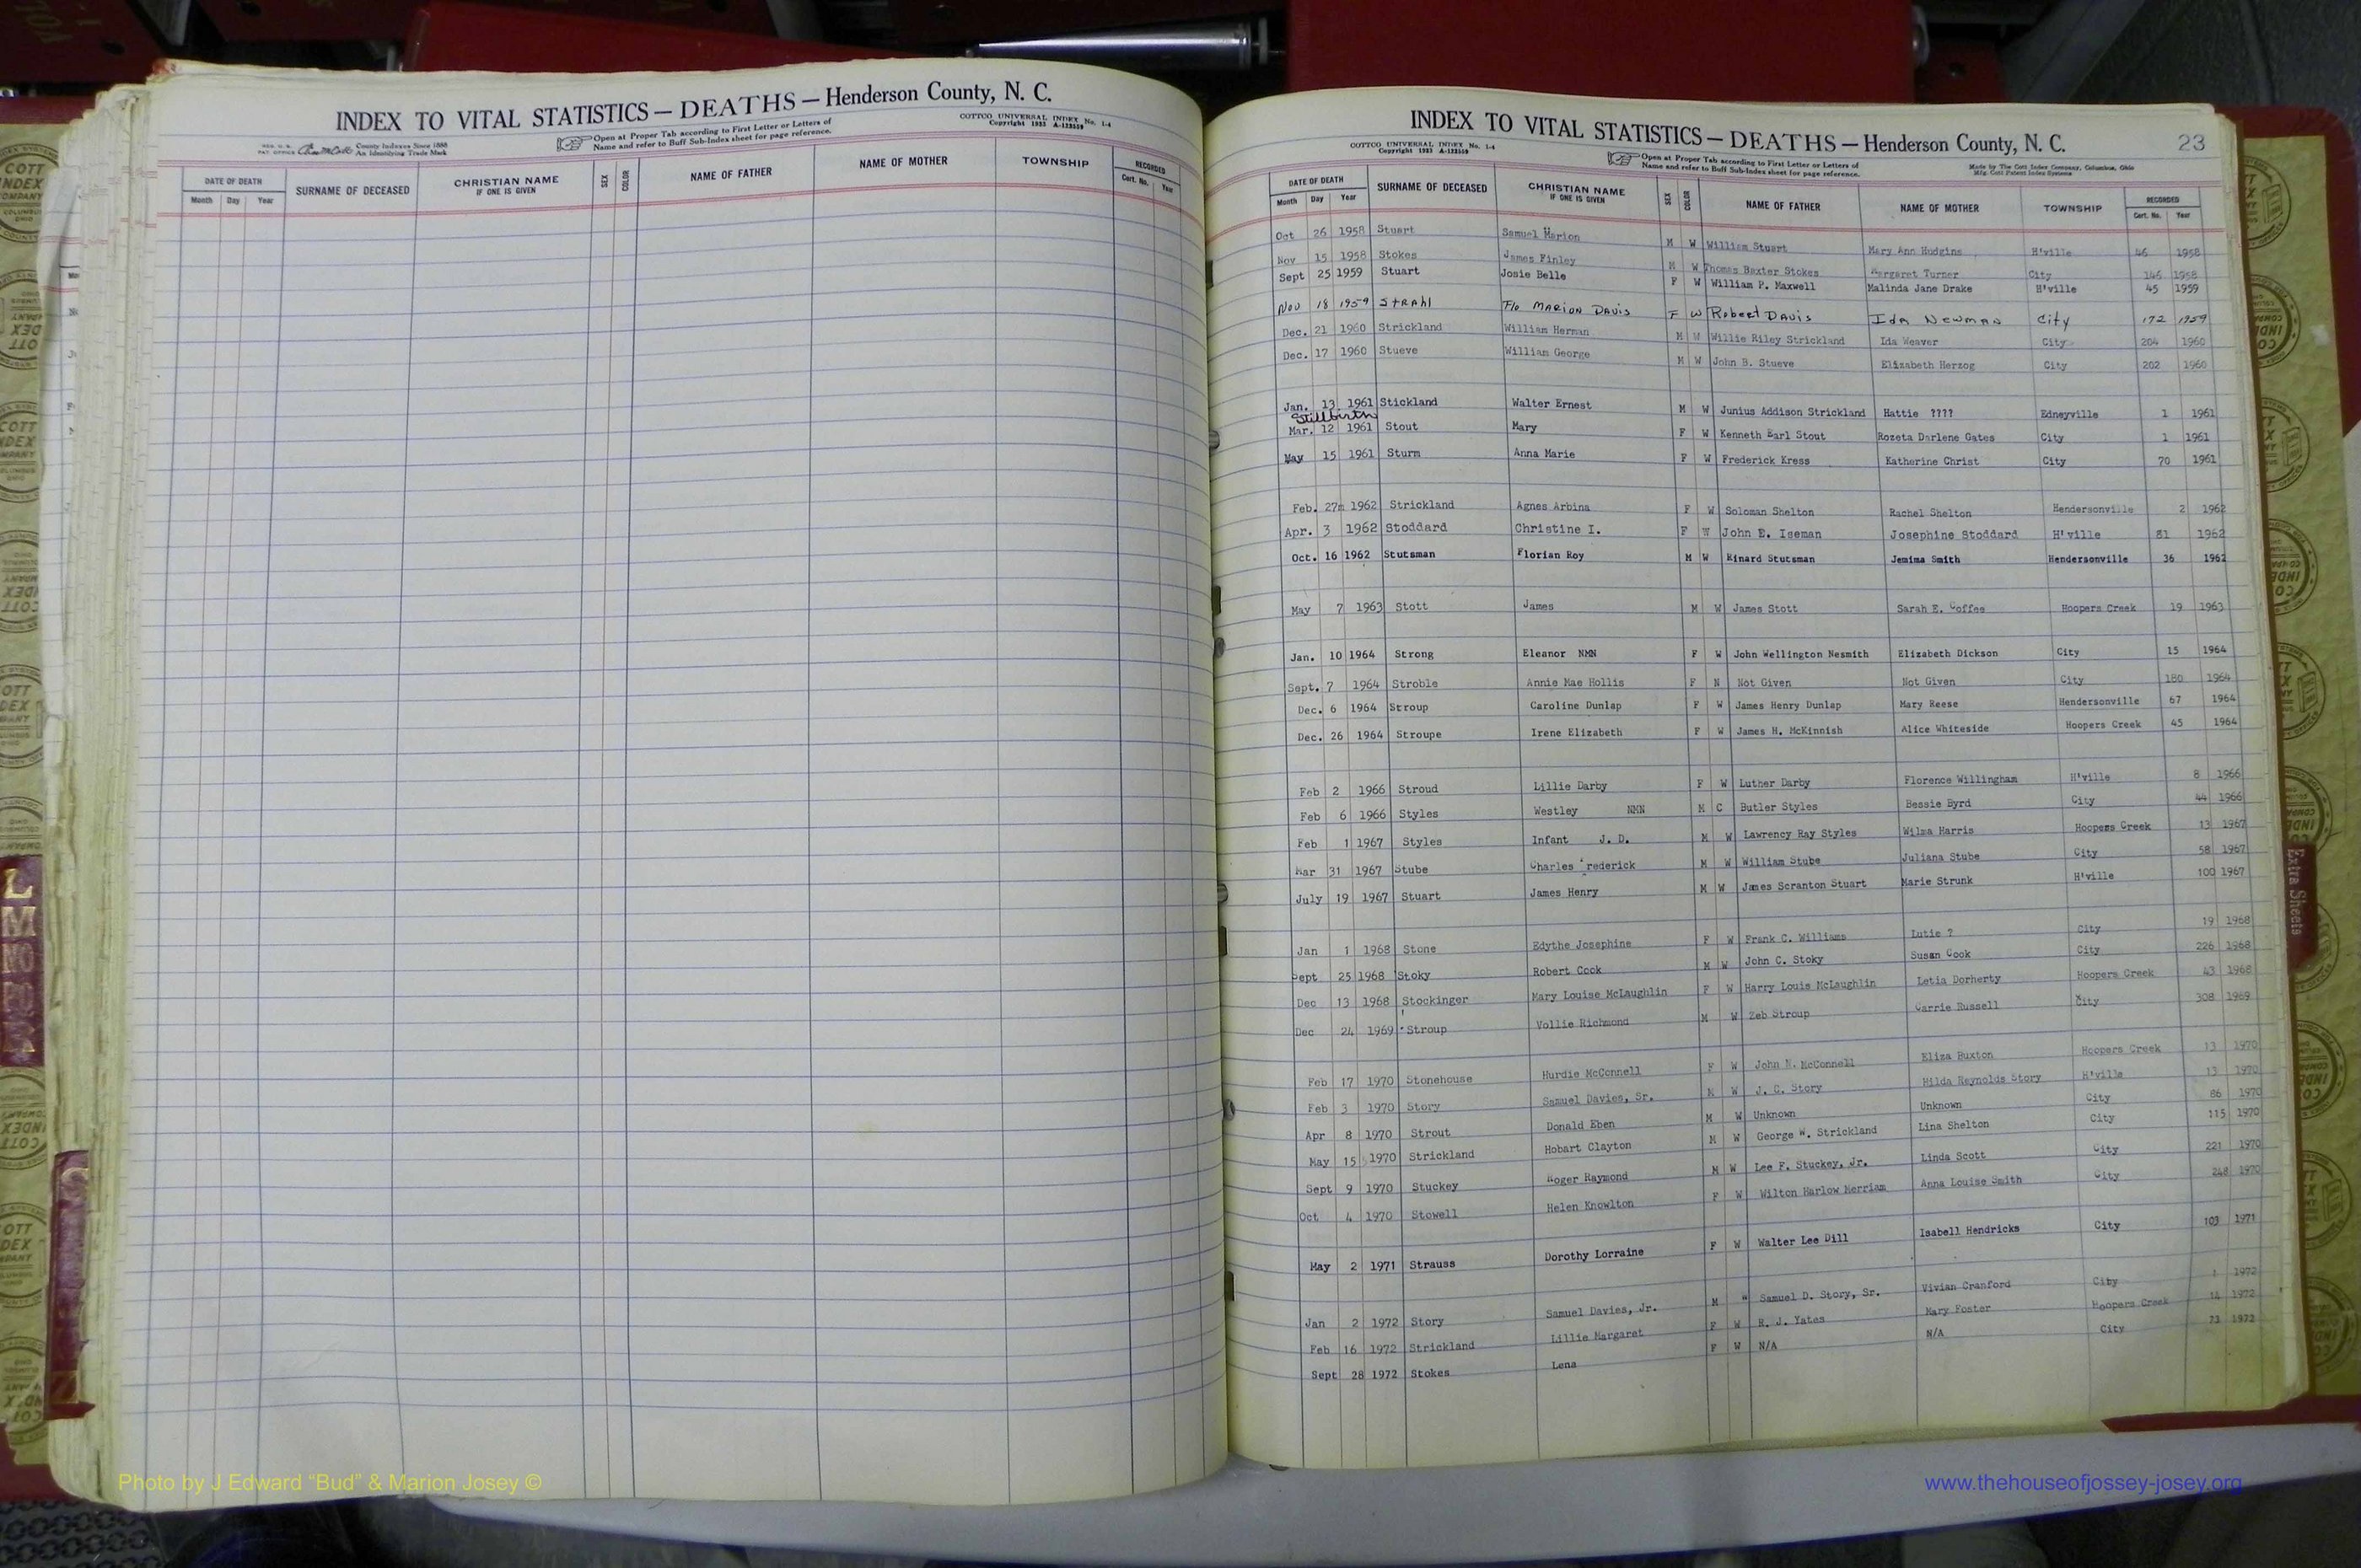 INDEX TO VITAL STATISTICS — DEATHS — Henderson County, N. C.
Open at Proper Tab according to First Letter or Letters of
Name and refer to Buff Sub-Index sheet for page reference.
COTTCO UNIVERSAL INDEX No. 1-4
Copyright 1923 A-122559
County Indexes Since 1888
An Identifying Trade Mark
DATE OF DEATH SURNAME OF DECEASED CHRISTIAN NAME IF ONE IS GIVEN SEX COLOR NAME OF FATHER NAME OF MOTHER TOWNSHIP RECORDED
Month Day Year Cert. No. Year
INDEX TO VITAL STATISTICS — DEATHS — Henderson County, N. C. 23
COTTCO UNIVERSAL INDEX No. 1-4
Copyright 1923 A-122559
Open at Proper Tab according to First Letter or Letters of
Name and refer to Buff Sub-Index sheet for page reference.
Made by The Cott Index Company, Columbus, Ohio
Mfg. Cott Patent Index Systems
DATE OF DEATH SURNAME OF DECEASED CHRISTIAN NAME IF ONE IS GIVEN SEX COLOR NAME OF FATHER NAME OF MOTHER TOWNSHIP RECORDED
Month Day Year Cert. No. Year
Oct 26 1958 Stuart Samuel Marion M W William Stuart Mary Ann Hudgins H'ville 46 1958
Nov 15 1958 Stokes James Finley M W Thomas Baxter Stokes Margaret Turner City 146 1958
Sept 25 1959 Stuart Josie Belle F W William P. Maxwell Malinda Jane Drake H'ville 45 1959
Nov 18 1959 STRAhl Flo MARION DAVIS F W Robert DAVIS IdA NEWMAN City 172 1959
Dec. 21 1960 Strickland William Herman M W Willie Riley Strickland Ida Weaver City 204 1960
Dec. 17 1960 Stueve William George M W John B. Stueve Elizabeth Herzog City 202 1960
Jan. 13 1961 Stickland Walter Ernest M W Junius Addison Strickland Hattie ???? Edneyville 1 1961
Stillbirth
Mar. 12 1961 Stout Mary F W Kenneth Earl Stout Rozeta Darlene Gates City 1 1961
May 15 1961 Sturm Anna Marie F W Frederick Kress Katherine Christ City 70 1961
Feb. 27m 1962 Strickland Agnes Arbina F W Soloman Shelton Rachel Shelton Hendersonville 2 1962
Apr. 3 1962 Stoddard Christine I. F W John E. Iseman Josephine Stoddard H'ville 81 1962
Oct. 16 1962 Stutsman Florian Roy M W Rinard Stutsman Jemima Smith Hendersonville 36 1962
May 7 1963 Stott James M W James Stott Sarah E. Coffee Hoopers Creek 19 1963
Jan. 10 1964 Strong Eleanor NMN F W John Wellington Nesmith Elizabeth Dickson City 15 1964
Sept. 7 1964 Stroble Annie Mae Hollis F N Not Given Not Given City 180 1964
Dec. 6 1964 Stroup Caroline Dunlap F W James Henry Dunlap Mary Reese Hendersonville 67 1964
Dec. 26 1964 Stroupe Irene Elizabeth F W James H. McKinnish Alice Whiteside Hoopers Creek 45 1964
Feb 2 1966 Stroud Lillie Darby F W Luther Darby Florence Willingham H'ville 8 1966
Feb 6 1966 Styles Westley NMN M C Butler Styles Bessie Byrd City 44 1966
Feb 1 1967 Styles Infant J. D. M W Lawrency Ray Styles Wilma Harris Hoopers Creek 13 1967
Mar 31 1967 Stube Charles Frederick M W William Stube Juliana Stube City 58 1967
July 19 1967 Stuart James Henry M W James Scranton Stuart Marie Strunk H'ville 100 1967
Jan 1 1968 Stone Edythe Josephine F W Frank C. Williams Lutie ? City 19 1968
Sept 25 1968 Stoky Robert Cook M W John C. Stoky Susan Cook City 226 1968
Dec 13 1968 Stockinger Mary Louise McLaughlin F W Harry Louis McLaughlin Letia Dorherty Hoopers Creek 43 1968
Dec 24 1969 Stroup Vollie Richmond M W Zeb Stroup Carrie Russell City 308 1969
Feb 17 1970 Stonehouse Hurdie McConnell F W John N. McConnell Eliza Buxton Hoopers Creek 13 1970
Feb 3 1970 Story Samuel Davies, Sr. M W J. C. Story Hilda Reynolds Story H'ville 13 1970
Apr 8 1970 Strout Donald Eben M W Unknown Unknown City 86 1970
May 15 1970 Strickland Hobart Clayton M W George W. Strickland Lina Shelton City 115 1970
Sept 9 1970 Stuckey Roger Raymond M W Lee F. Stuckey, Jr. Linda Scott City 221 1970
Oct 4 1970 Stowell Helen Knowlton F W Wilton Harlow Merriam Anna Louise Smith City 248 1970
May 2 1971 Strauss Dorothy Lorraine F W Walter Lee Dill Isabell Hendricks City 103 1971
Jan 2 1972 Story Samuel Davies, Jr. M " Samuel D. Story, Sr. Vivian Cranford City 1 1972
Feb 16 1972 Strickland Lillie Margaret F W R. J. Yates Mary Foster Hoopers Creek 14 1972
Sept 28 1972 Stokes Lena F W N/A N/A City 73 1972
Extra Sheets
L
M
Photo by J Edward “Bud” & Marion Josey ©
www.thehouseofjossey-josey.org